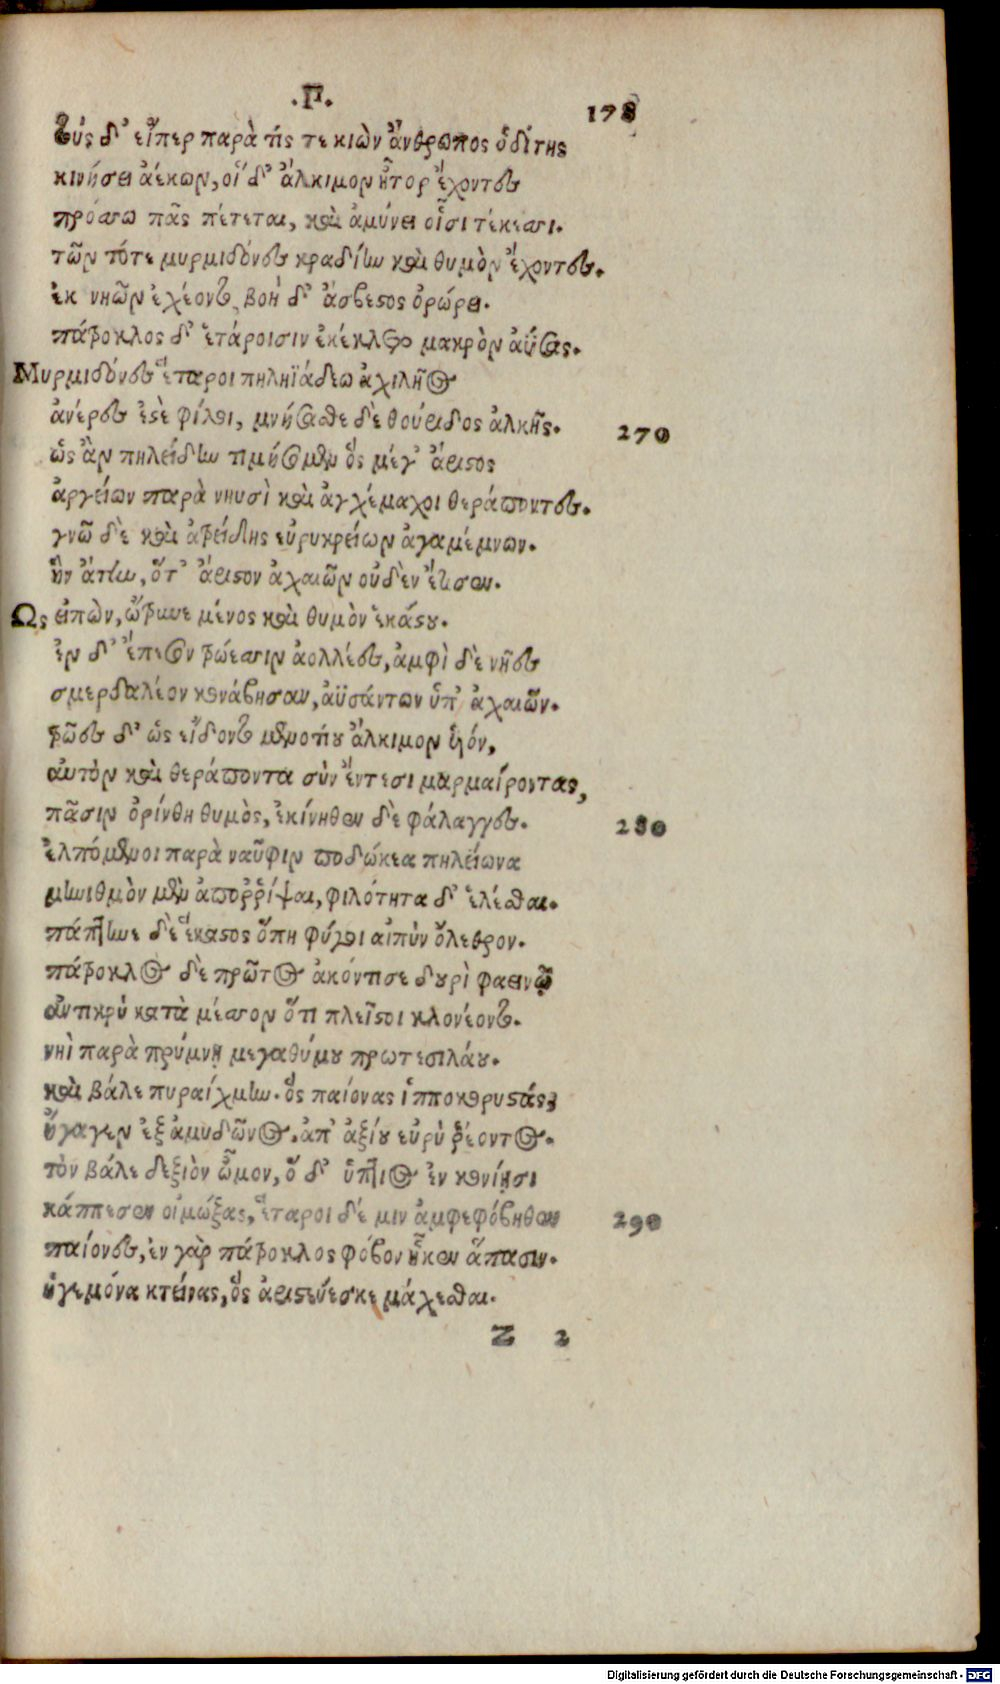 .Π.
178
Τοὺς δ' εἴπερ παρὰ τίς τε κιὼν ἄνθρωπος ὁδίτης
κινήσει ἀέκων, οἱ δ' ἄλκιμον ἦτορ ἔχοντες
πρόσσω πᾶς πέτεται, καὶ ἀμύνει οἷσι τέκεσσι.
τῶν τότε μυρμιδόνες κραδίην καὶ θυμὸν ἔχοντες.
ἐκ νηῶν ἐχέοντο, βοὴ δ' ἄσβεστος ὀρώρει.
πάτροκλος δ' ἑτάροισιν ἐκέκλετο μακρὸν ἀΰσας.
Μυρμιδόνες ἕταροι πηληϊάδεω ἀχιλῆος
ἀνέρες ἐστὲ φίλοι, μνήσασθε δὲ θούριδος ἀλκῆς. 270
ὡς ἂν πηλείδην τιμήσομεν ὃς μέγ' ἄριστος
ἀργείων παρὰ νηυσὶ καὶ ἀγχέμαχοι θεράποντες.
γνῶ δὲ καὶ ἀτρείδης εὐρυκρείων ἀγαμέμνων.
ἣν ἄτην, ὅτ' ἄριστον ἀχαιῶν οὐδὲν ἔτισεν.
Ως εἰπὼν, ὤτρυνε μένος καὶ θυμὸν ἑκάστου.
ἐν δ' ἔπεσον τρώεσσιν ἀολλέες, ἀμφὶ δὲ νῆες
σμερδαλέον κονάβησαν, ἀϋσάντων ὑπ' ἀχαιῶν.
τρῶες δ' ὡς εἴδοντο μενοιτίου ἄλκιμον υἱόν,
αὐτὸν καὶ θεράποντα σὺν ἔντεσι μαρμαίροντας,
πᾶσιν ὀρίνθη θυμὸς, ἐκίνηθεν δὲ φάλαγγες. 280
ἐλπόμενοι παρὰ ναῦφιν ποδώκεα πηλείωνα
μηνιθμὸν μὲν ἀποῤῥίψαι, φιλότητα δ' ἑλέσθαι.
πάπτηνε δὲ ἕκαστος ὅπη φύγοι αἰπὺν ὄλεθρον.
πάτροκλος δὲ πρῶτος ἀκόντισε δουρὶ φαεινῷ
ἀντικρὺ κατὰ μέσσον ὅτι πλεῖστοι κλονέοντο.
νηῒ παρὰ πρύμνῃ μεγαθύμου πρωτεσιλάου.
καὶ βάλε πυραίχμην. ὃς παίονας ἱπποκορυστὰς
ἤγαγεν ἐξ ἀμυδῶνος. ἀπ' ἀξίου εὐρὺ ῥέοντος.
τὸν βάλε δεξιὸν ὦμον, ὃ δ' ὕπτιος ἐν κονίῃσι
κάππεσεν οἰμώξας, ἕταροι δέ μιν ἀμφεφόβηθεν 290
παίονες, ἐν γὰρ πάτροκλος φόβον ἧκεν ἅπασιν.
ἡγεμόνα κτείνας, ὃς ἀριστεύεσκε μάχεσθαι.
Z 2
Digitalisierung gefördert durch die Deutsche Forschungsgemeinschaft - DFG